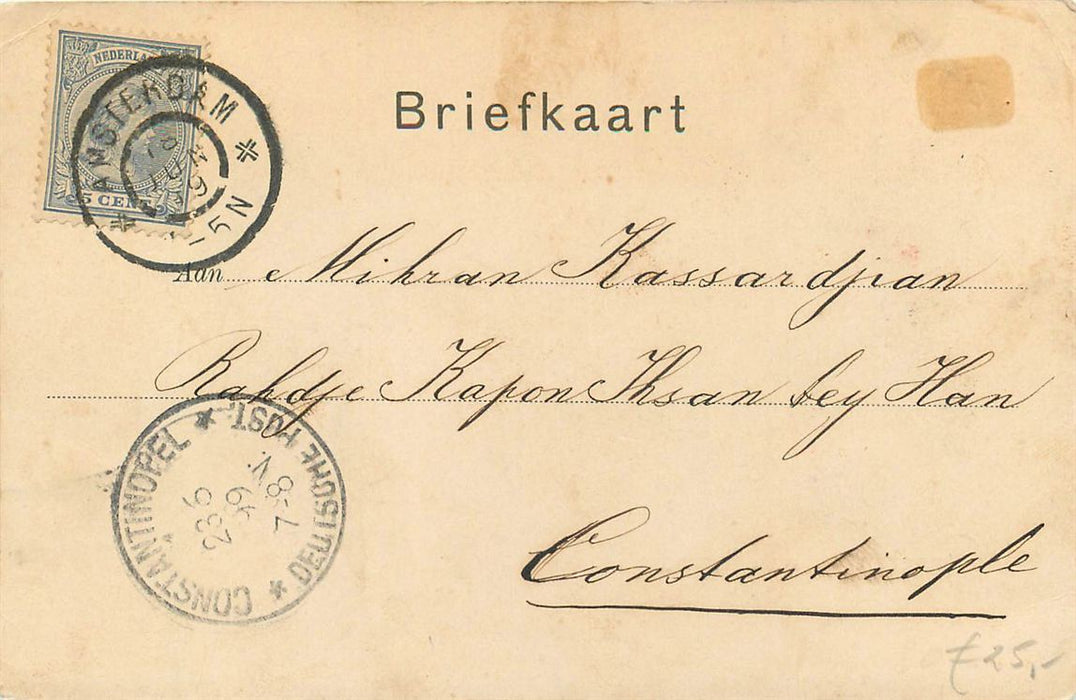 NEDERLAND
5 CENT
AMSTERDAM
18 JUN 99
-5N
Briefkaart
Aan Mihran Kassardjian
Rahdje Kapon Ihsan bey Han
Constantinople
CONSTANTINOPEL * DEUTSCHE POST *
23 6
99
7-8 N.
£25,-